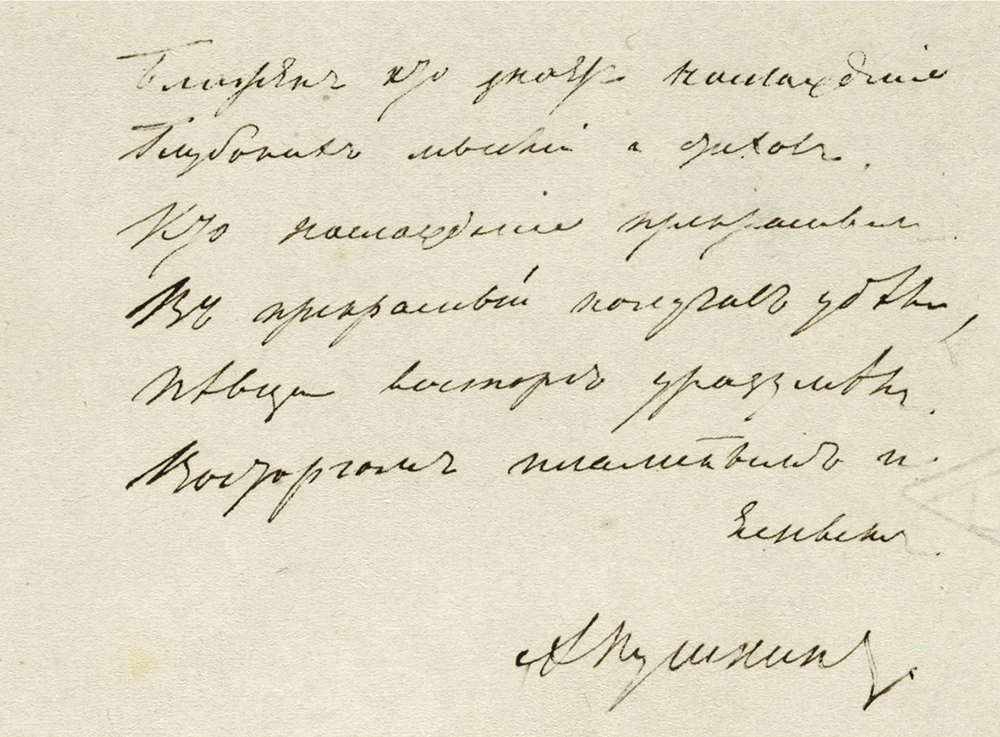 Блаженъ кто знаетъ наслажденіе
Глубокихъ мыслей и стиховъ.
Кто наслажденіе прекраснымъ
Въ прекрасный получилъ удѣлъ,
Пѣвца восторгъ уразумѣлъ
Восторгомъ пламеннымъ и
яснымъ.
А Пушкинъ